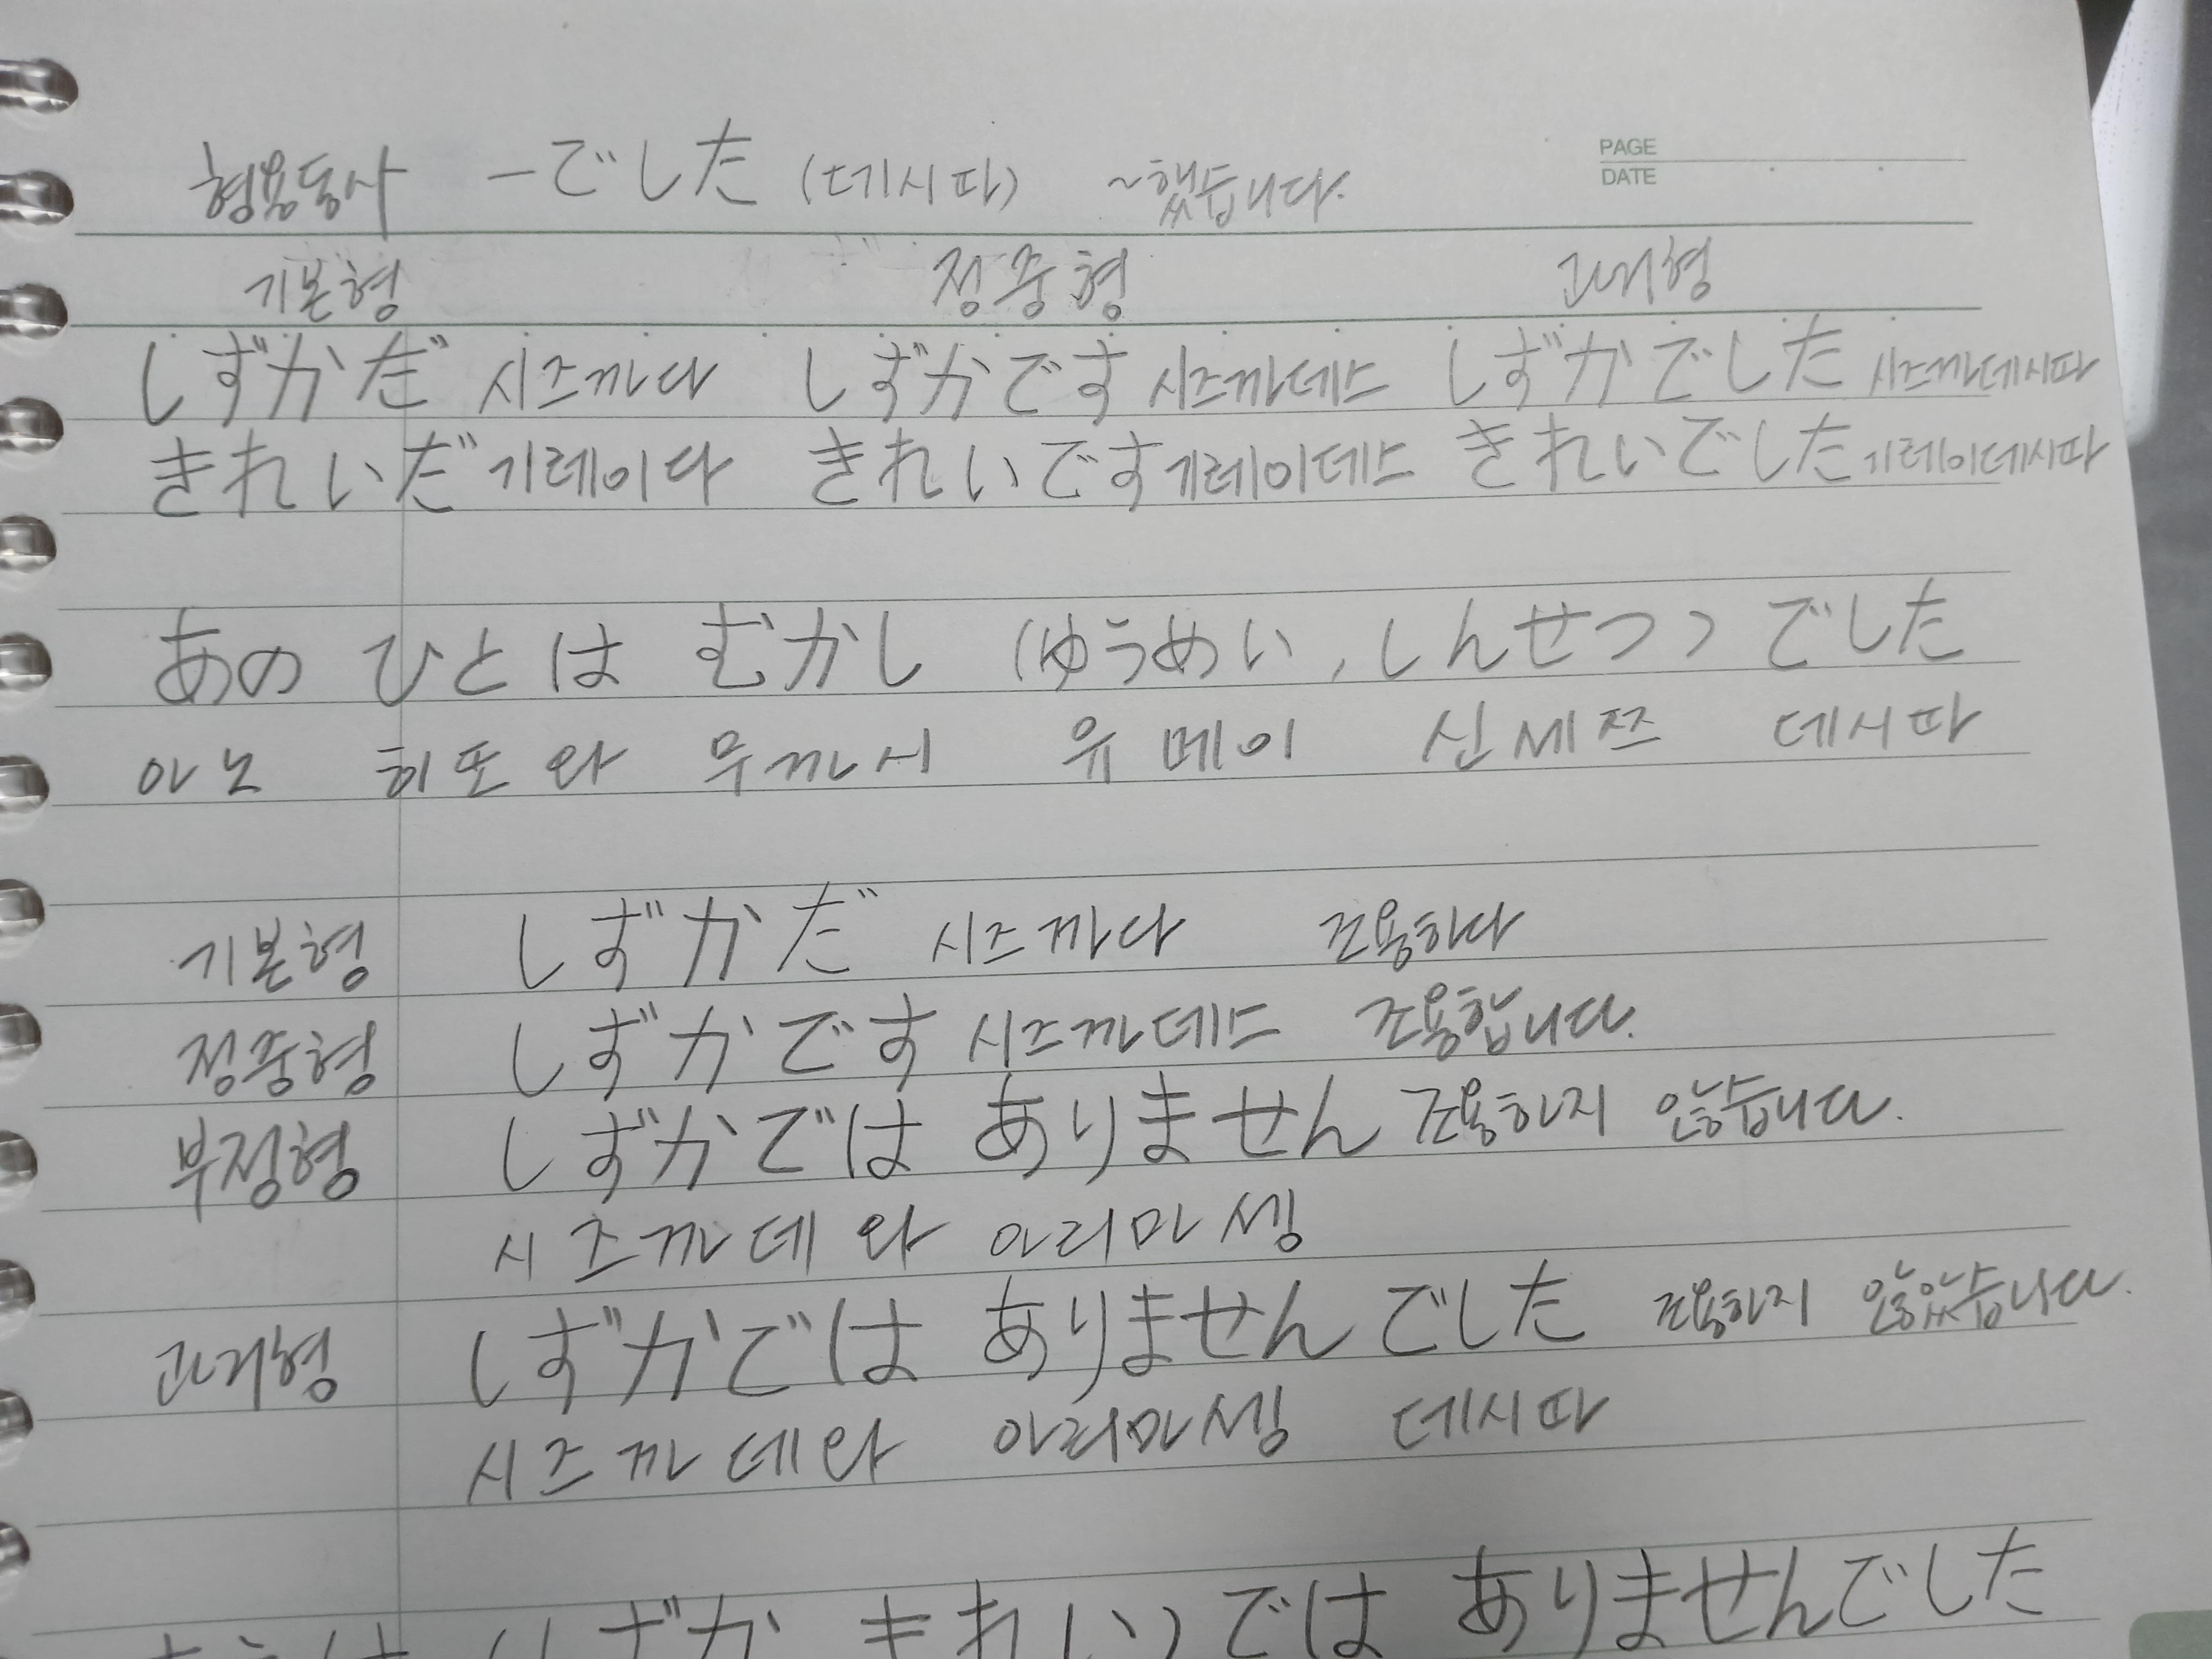 형용동사 -でした (데시따) ~했습니다.
PAGE
DATE
기본형 정중형 과거형
しずかだ 시즈까다 しずかです 시즈까데스 しずかでした 시즈까데시따
きれいだ 기레이다 きれいです 기레이데스 きれいでした 기레이데시따
あの ひと は むかし (ゆうめい, しんせつ) でした
아노 히또 와 무까시 유메이 신세쯔 데시따
기본형 しずかだ 시즈까다 조용하다
정중형 しずかです 시즈까데스 조용합니다.
부정형 しずかでは ありません 조용하지 않습니다.
시즈까데 와 아리마셍
과거형 しずかでは ありません でした 조용하지 않았습니다.
시즈까데와 아리마셍 데시따
しずか きれい) では ありませんでした